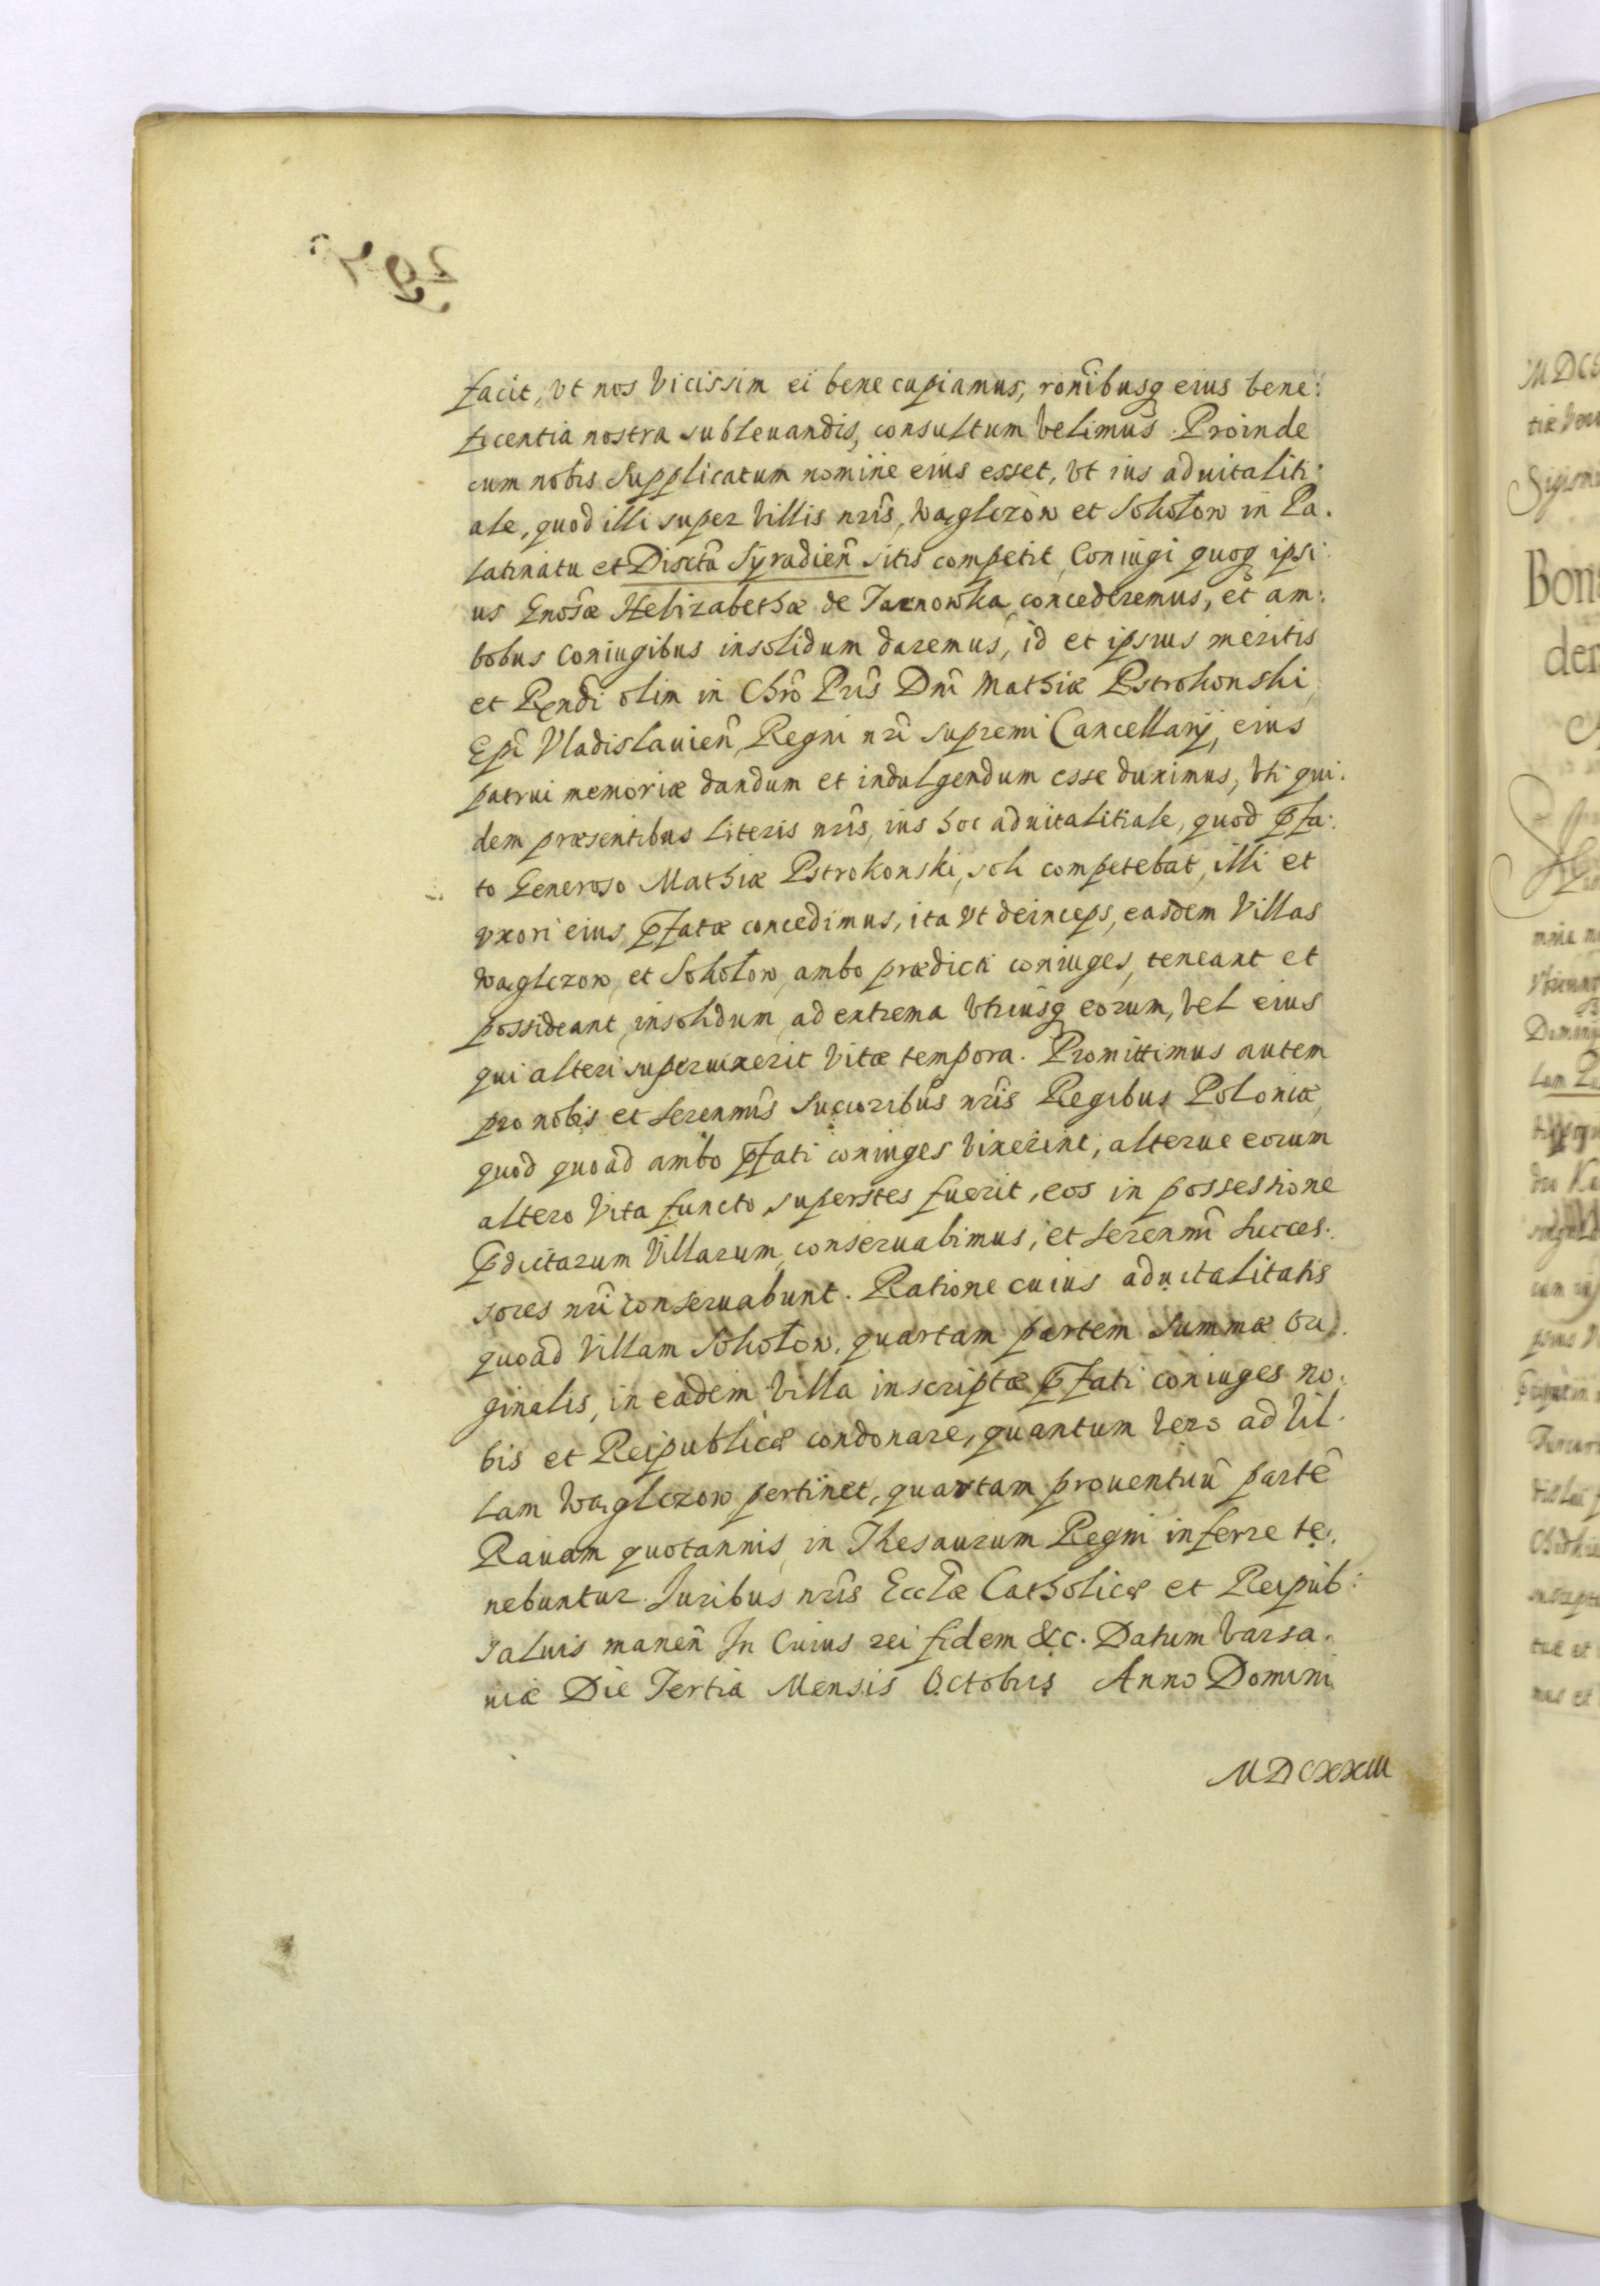 facit, vt nos vicissim ei bene cupiamus, ronibusq eius bene:
ficentia nostra subleuandis, consultum velimus. Proinde
cum nobis supplicatum nomine eius esset, vt ius aduitaliti:
ale, quod illi super villis nris, Waglczow et Sokołow in Pa.
latinatu et Disctu Syradien sitis competit, Coniugi quoq ipsi:
us Gnosæ Helizabethæ de Tarnowka concederemus, et am:
bobus coniugibus insolidum daremus, id et ipsius meritis
et Rendi olim in Chro Pris Dni Mathiæ Pstrokonski,
Epi Vladislauien, Regni nri supremi Cancellarij, eius
patrui memoriæ dandum et indulgendum esse duximus, vti qui.
dem præsentibus literis nris, ius hoc aduitalitiale, quod pfa:
to Generoso Mathiæ Pstrokonski, soli competebat, illi et
vxori eius pfatæ concedimus, ita vt deinceps, easdem villas
Waglczow, et Sokołow, ambo prædicti coniuges, teneant et
possideant, insolidum, ad extrema vtriusq eorum, vel eius
qui alteri superuixerit vitæ tempora. Promittimus autem
pro nobis et serenmis sucoribus nris Regibus Poloniæ,
quod quoad ambo pfati coniuges vixerint, alterue eorum
altero vita functo, superstes fuerit, eos in possessione
pdictarum villarum, conseruabimus, et serenmi succes.
sores nri conseruabunt. Ratione cuius aduitalitatis
quoad villam Sokołow, quartam partem summæ ori.
ginalis, in eadem villa inscriptæ pfati coniuges no.
bis et Reipublicæ condonare, quantum vero ad vil.
lam Waglczow pertinet, quartam prouentuu parte
Rauam quotannis, in Thesaurum Regni inferre te.
nebuntur. Juribus nris Ecclæ Catholicæ et Reipub:
saluis manen In Cuius rei fidem &c. Datum Varsa.
uiæ Die Tertia Mensis Octobris Anno Domini
MDCXXIII